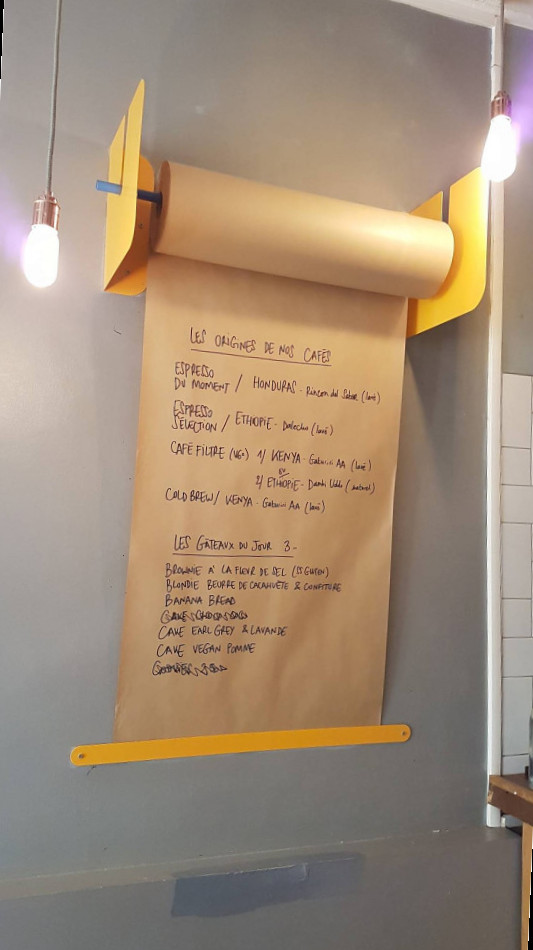 LES ORIGINES DE NOS CAFÉS
ESPRESSO
DU MOMENT / HONDURAS - Rincon del Sabor (lavé)
ESPRESSO
SÉLECTION / ETHIOPIE - (lavé)
CAFÉ FILTRE (V60) 1/ KENYA - Gatuiriri AA (lavé)
ou
2/ ETHIOPIE - Dambi Uddo (naturel)
COLD BREW / KENYA - Gatuiriri AA (lavé)
LES GÂTEAUX DU JOUR 3-
BROWNIE À LA FLEUR DE SEL (SS GLUTEN)
BLONDIE BEURRE DE CACAHUÈTE & CONFITURE
BANANA BREAD
CAKE EARL GREY & LAVANDE
CAKE VEGAN POMME